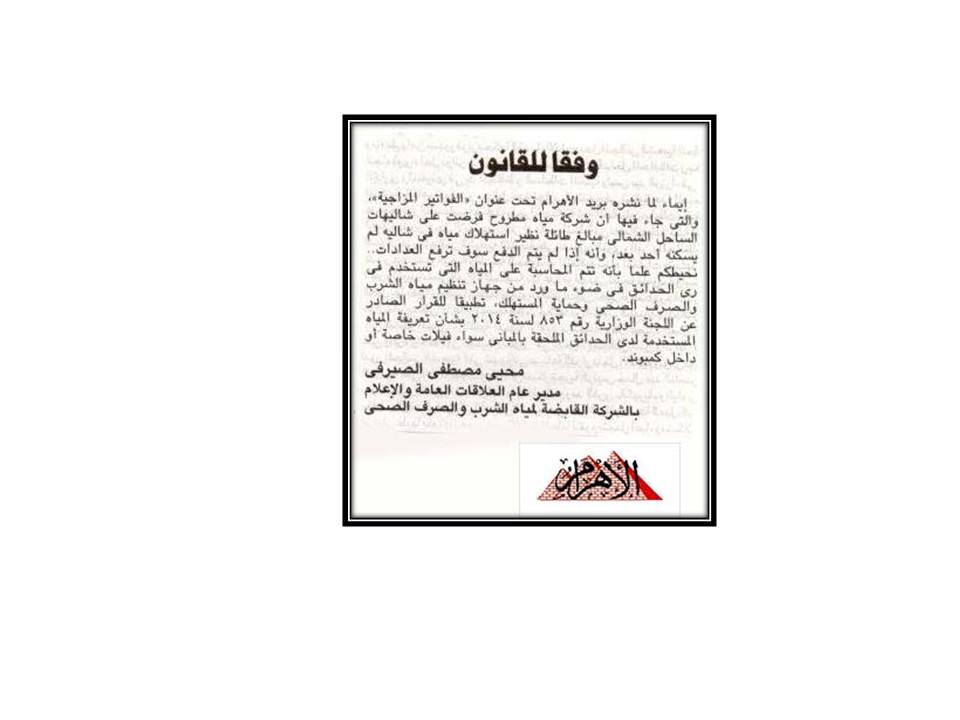 وفقا للقانون
إيماء لما نشره بريد الأهرام تحت عنوان «الفواتير المزاجية»،
والتى جاء فيها أن شركة مياه مطروح فرضت على شاليهات
الساحل الشمالى مبالغ طائلة نظير استهلاك مياه فى شاليه لم
يسكنه أحد بعد، وأنه إذا لم يتم الدفع سوف ترفع العدادات..
نحيطكم علما بأنه تتم المحاسبة على المياه التى تستخدم فى
رى الحدائق فى ضوء ما ورد من جهاز تنظيم مياه الشرب
والصرف الصحى وحماية المستهلك، تطبيقا للقرار الصادر
عن اللجنة الوزارية رقم ٨٥٣ لسنة ٢٠١٤ بشأن تعريفة المياه
المستخدمة لدى الحدائق الملحقة بالمبانى سواء فيلات خاصة أو
داخل كمبوند.
محيى مصطفى الصيرفى
مدير عام العلاقات العامة والإعلام
بالشركة القابضة لمياه الشرب والصرف الصحى
الأهرام